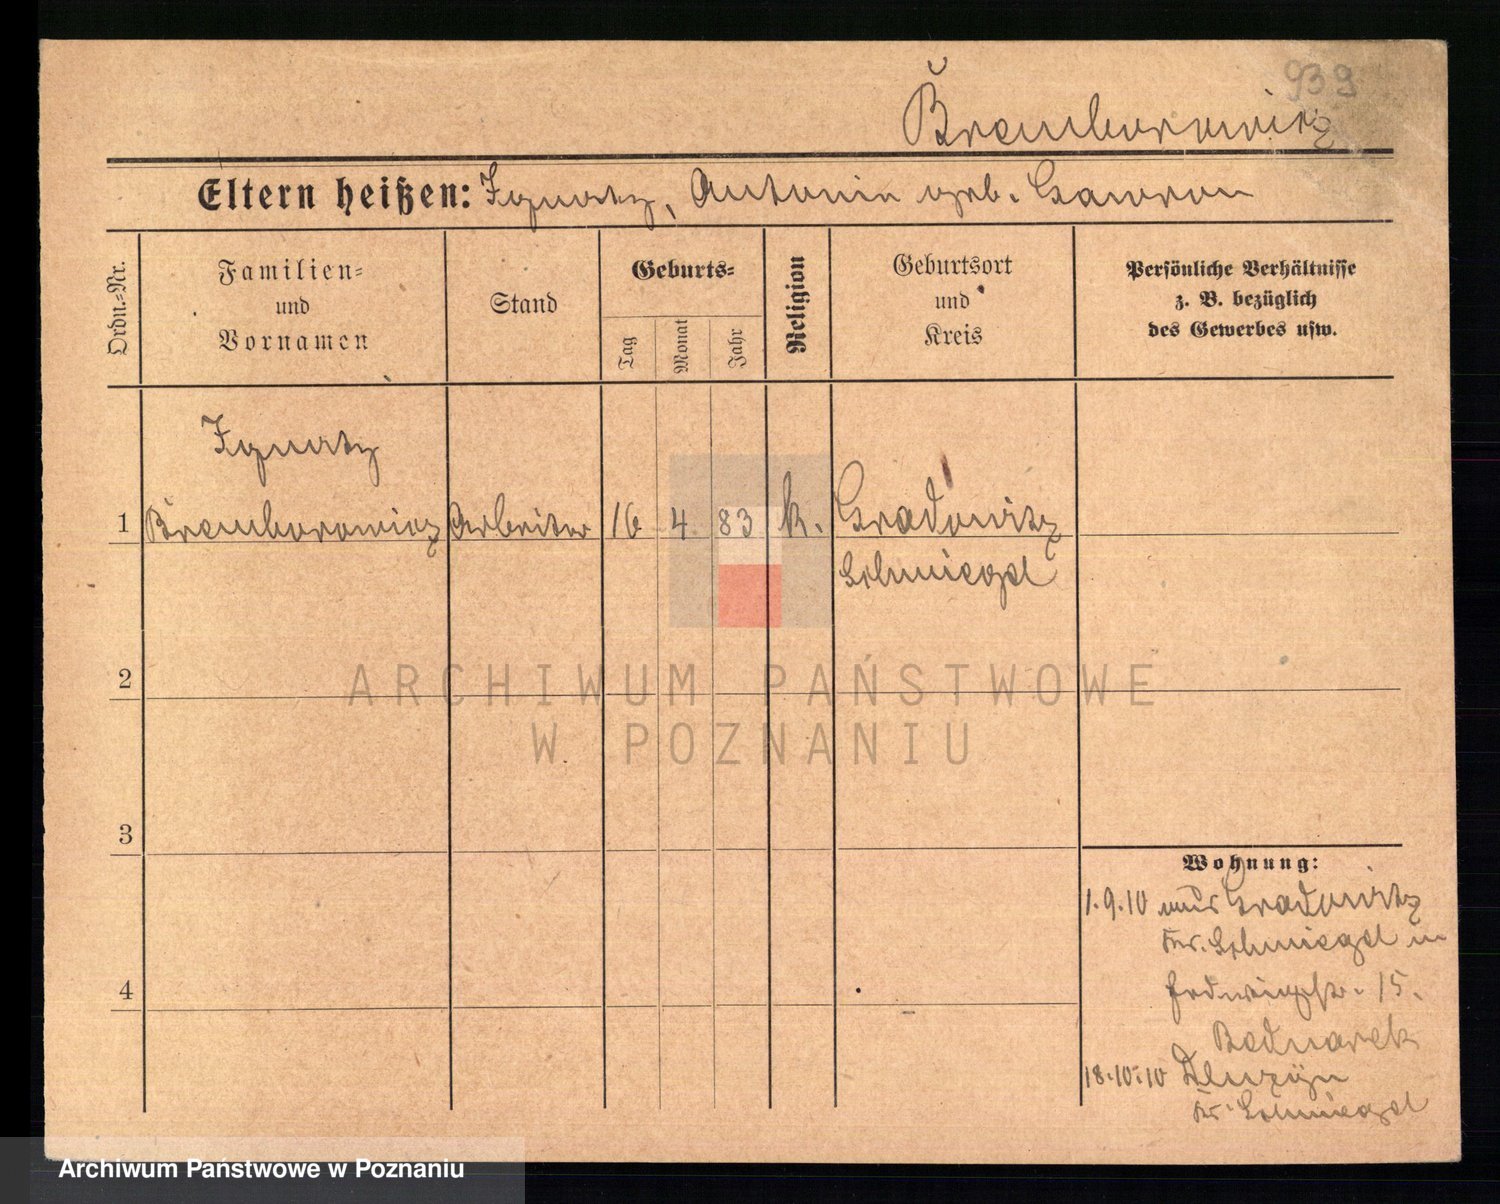 939
Bremborowicz
Eltern heißen: Ignatz, Antonie geb. Gawron
Ordn.-Nr.
Familien-
und
Vornamen
Stand
Geburts-
Tag
Monat
Jahr
Religion
Geburtsort
und
Kreis
Persönliche Verhältnisse
z. B. bezüglich
des Gewerbes usw.
Ignatz
1 Bremborowicz Arbeiter 16 4. 83 k. Gradowitz
Schmiegel
2
3
4
Wohnung:
1.9.10 aus Gradowitz
Kr. Schmiegel in
Hedwigstr. 15.
Bednarek
18.10.10 Dluzyn
Kr. Schmiegel
ARCHIWUM PAŃSTWOWE
W POZNANIU
Archiwum Państwowe w Poznaniu